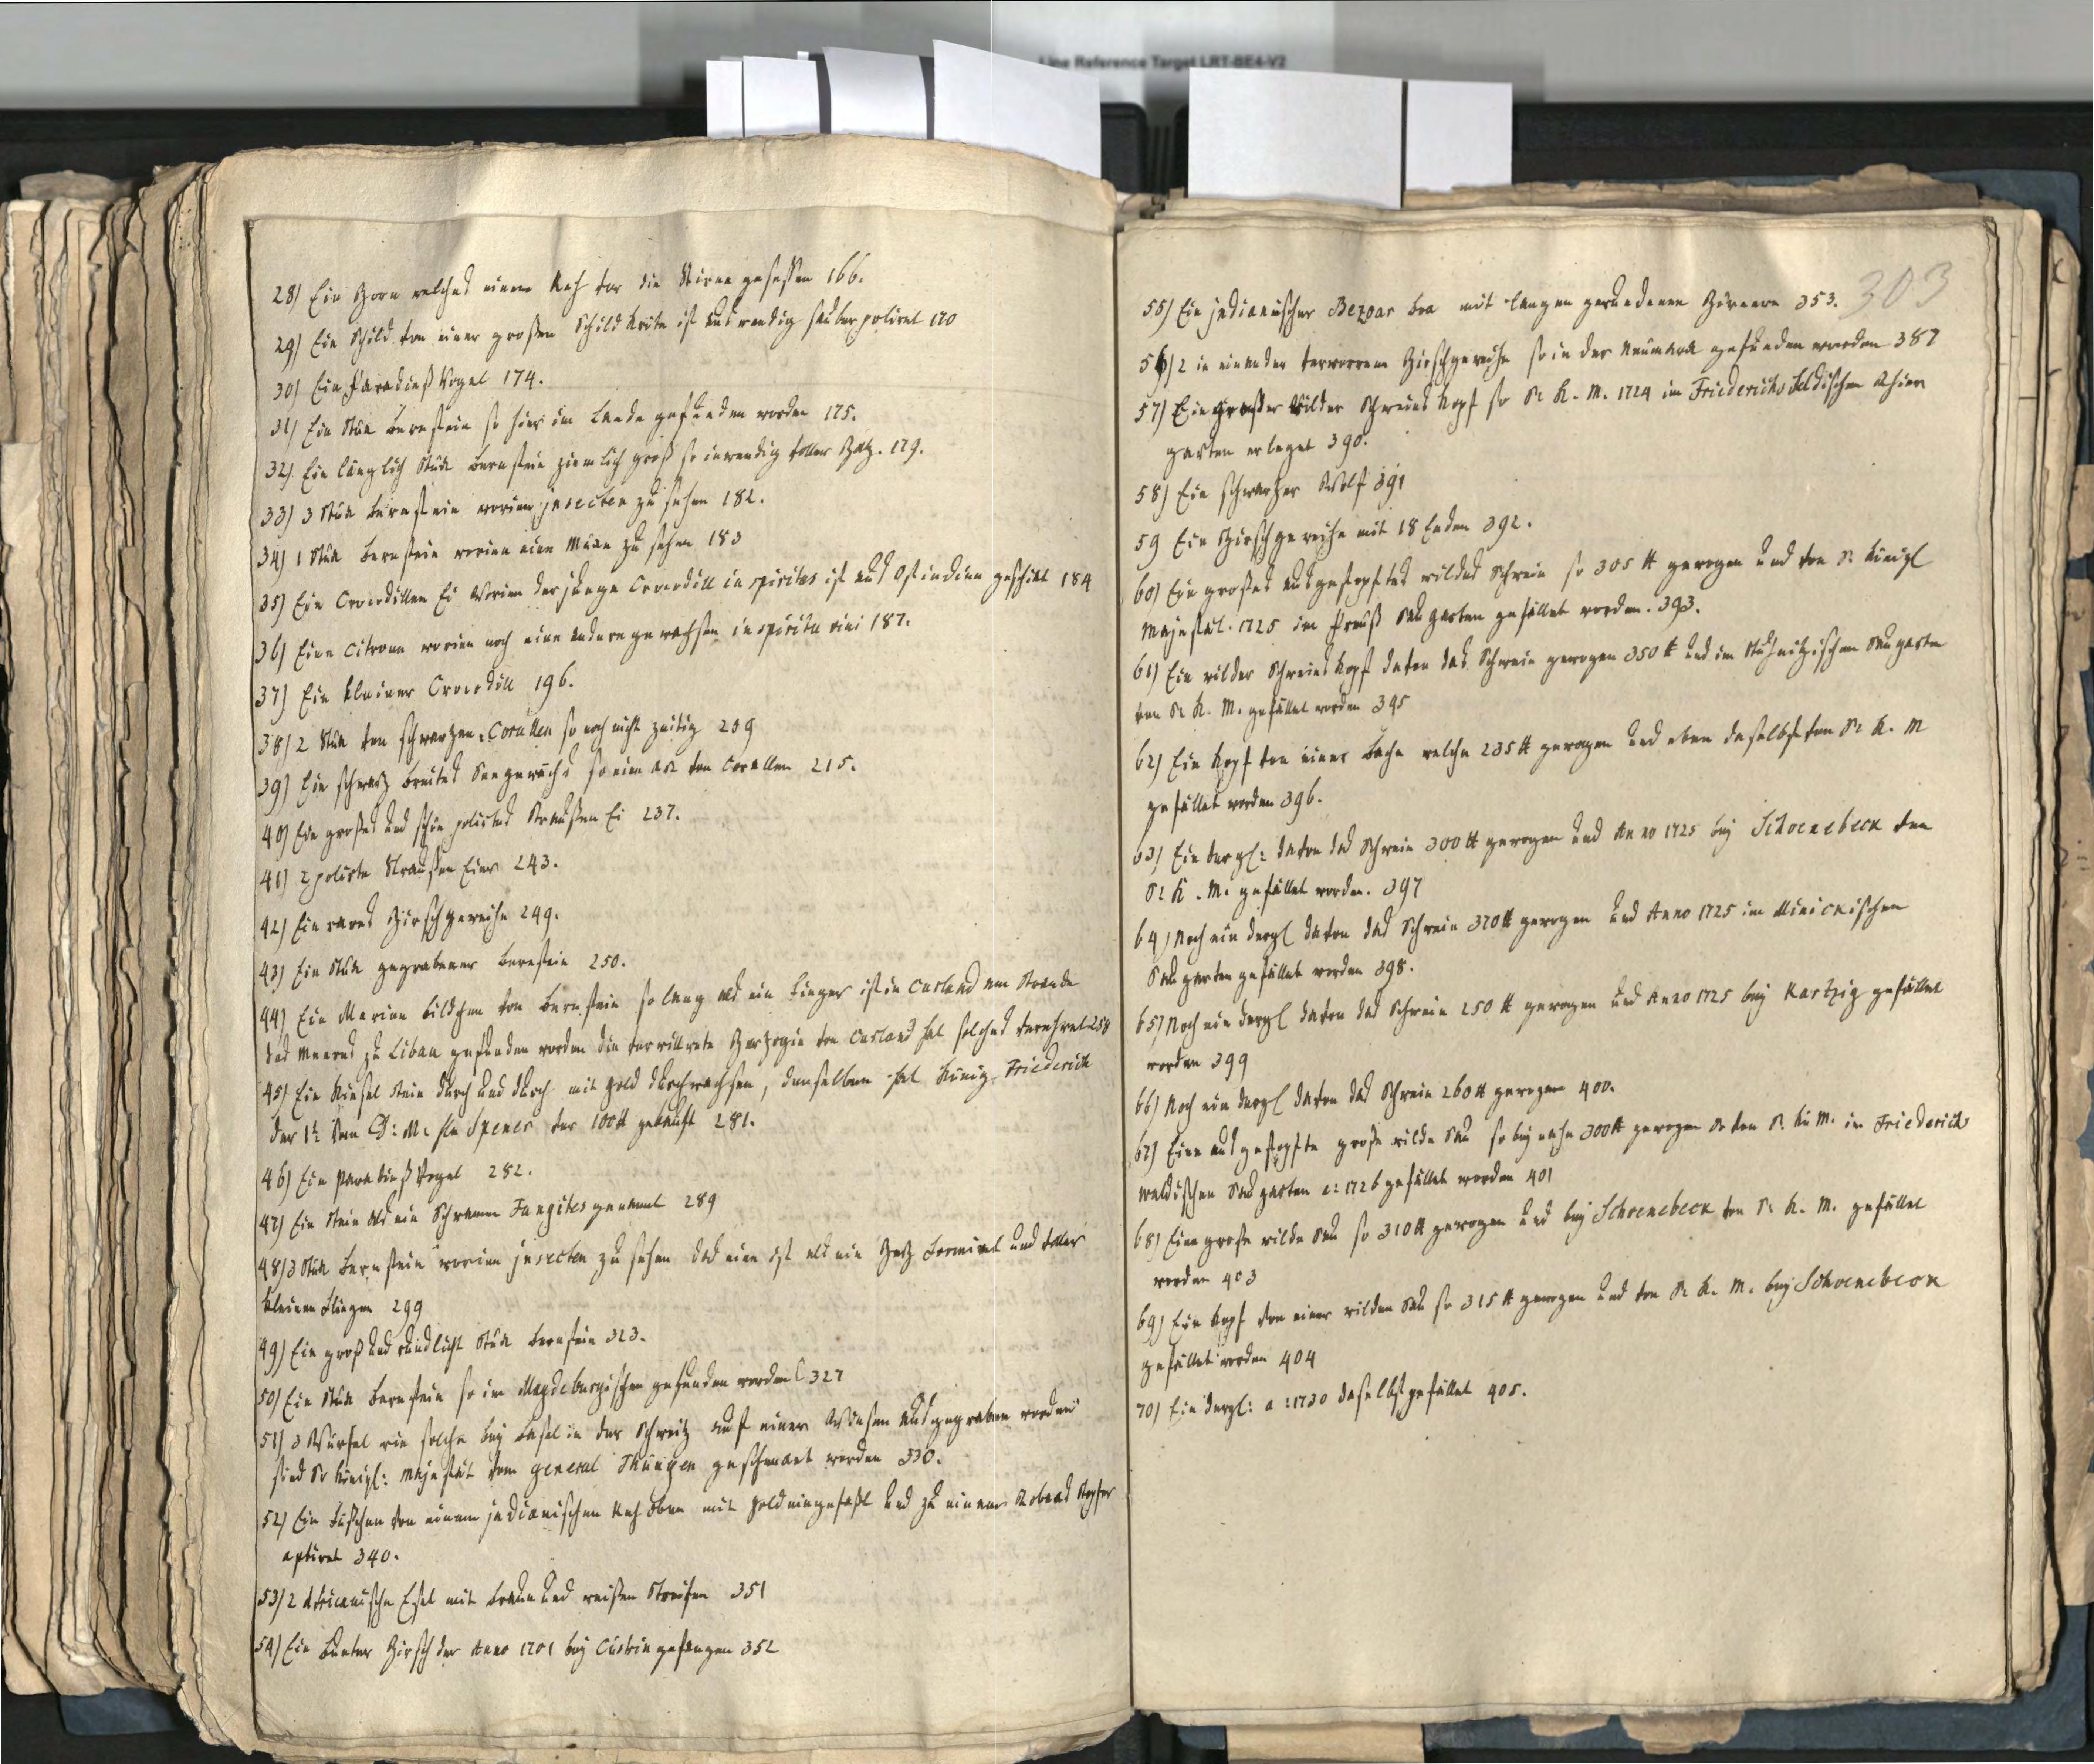 Line Reference Target LRT-BE4-V2
28) Ein Horn welches einem Reh vor die Stirne gesessen 166.
29) Ein Schild von einer großen Schild Kröte ist auswendig sauber poliret 170
30) Ein Paradieß Vogel 174.
31) Ein Stück Bernstein so hier im Lande gefunden worden 175.
32) Ein länglich Stück Bernstein ziemlich groß so inwendig voller Hartz. 179.
33) 3 Stück Bernstein worinn insecten zu sehen 182.
34) 1 Stück Bernstein worinn eine Mücke zu sehen 183
35) Ein Crocodillen Ei worinn der junge Crocodill in spiritus ist aus Ostindien geschikt 184
36) Eine Citrone worinn noch eine andere gewachsen in spiritu vini 187.
37) Ein kleiner Crocodill 196.
38) 2 Stück von schwarzen Corallen so noch nicht zeitig 209
39) Ein schwarz breites Seegewächs so eine Art von Corallen 215.
40) Ein großes und schön polirtes Straußen Ei 237.
41) 2 polirte Straußen Eier 243.
42) Ein rares Hirschgeweihe 249.
43) Ein Stück gegrabener Bernstein 250.
44) Ein Marien bildchen von Bernstein so lang als ein Finger ist in Curland am Strande
des Meeres zu Libau gefunden worden die verwittwete Herzogin von Curland hat solches verehret 258
45) Ein Kiesel Stein durch und durch mit Gold durchwachsen, denselben hat König Friederich
der 1te von D: M: Spener vor 100 gekauft 281.
46) Ein Paradieß Vogel 282.
47) Ein Stein als ein Schwamm Fungites genannt 289
48) 3 Stück Bernstein worinn insecten zu sehen das eine ist als ein Hertz formiret und voller
kleinen Fliegen 299
49) Ein groß und rundlicht Stück Bernstein 323.
50) Ein Stück Bernstein so im Magdeburgischen gefunden worden 327
51) 3 Würfel wie solche bey Basel in der Schweitz auf einer Wiesen ausgegraben worden
sind Sr Königl: Majestät vom General Thüngen geschenckt worden 330.
52) Ein Füßchen von einem indianischen Reh oben mit Gold eingefaßt und zu einem Tobacks Stopfer
aptiret 340.
53) 2 Africanische Esel mit braun und weißen Streifen 351
54) Ein bunter Hirsch der Anno 1701 bey Cüstrin gefangen 352
303
55) Ein indianischer Bezoar Boc mit langen gewundenen Hörnern 353.
56) 2 in einander verworrene Hirschgeweihe so in der Neumarck gefunden worden 387
57) Ein großer wilder Schweins Kopf so Sr K. M. 1724 im Friederichs feldischen Thier
garten erleget 390.
58) Ein schwartzer Wolf 391
59 Ein Hirschgeweihe mit 18 Enden 392.
60) Ein großes ausgestopftes wildes Schwein so 305 ℔ gewogen und von Sr Königl
Majestät. 1725 im Preuß Saugarten gefället worden. 393.
61) Ein wilder Schweins Kopf davon das Schwein gewogen 350 ℔ und im Saugarten
von Sr K. M. gefället worden 395
62) Ein Kopf von einer Bache welche 235 ℔ gewogen und eben daselbst von Sr K. M
gefället worden 396.
63) Ein dergl: davon das Schwein 300 ℔ gewogen und Anno 1725 bey Schoenebeck von
Sr K. M. gefället worden. 397
64) Noch ein dergl davon das Schwein 370 ℔ gewogen und Anno 1725 im
Saugarten gefället worden 398.
65) Noch ein dergl davon das Schwein 250 ℔ gewogen und Anno 1725 bey Kartzig gefället
worden 399
66) Noch ein dergl davon das Schwein 260 ℔ gewogen 400.
67) Eine ausgestopfte große wilde Sau so bey nahe 300 ℔ gewogen von Sr K. M. im Friederichs
waldischen Saugarten a: 1726 gefället worden 401
68) Eine große wilde Sau so 310 ℔ gewogen und bey Schoenebeck von Sr K. M. gefället
worden 403
69) Ein Kopf von einer wilden Sau so 315 ℔ gewogen und von Sr K. M. bey Schoenebeck
gefället worden 404
70) Ein dergl: a: 1730 daselbst gefället 405.